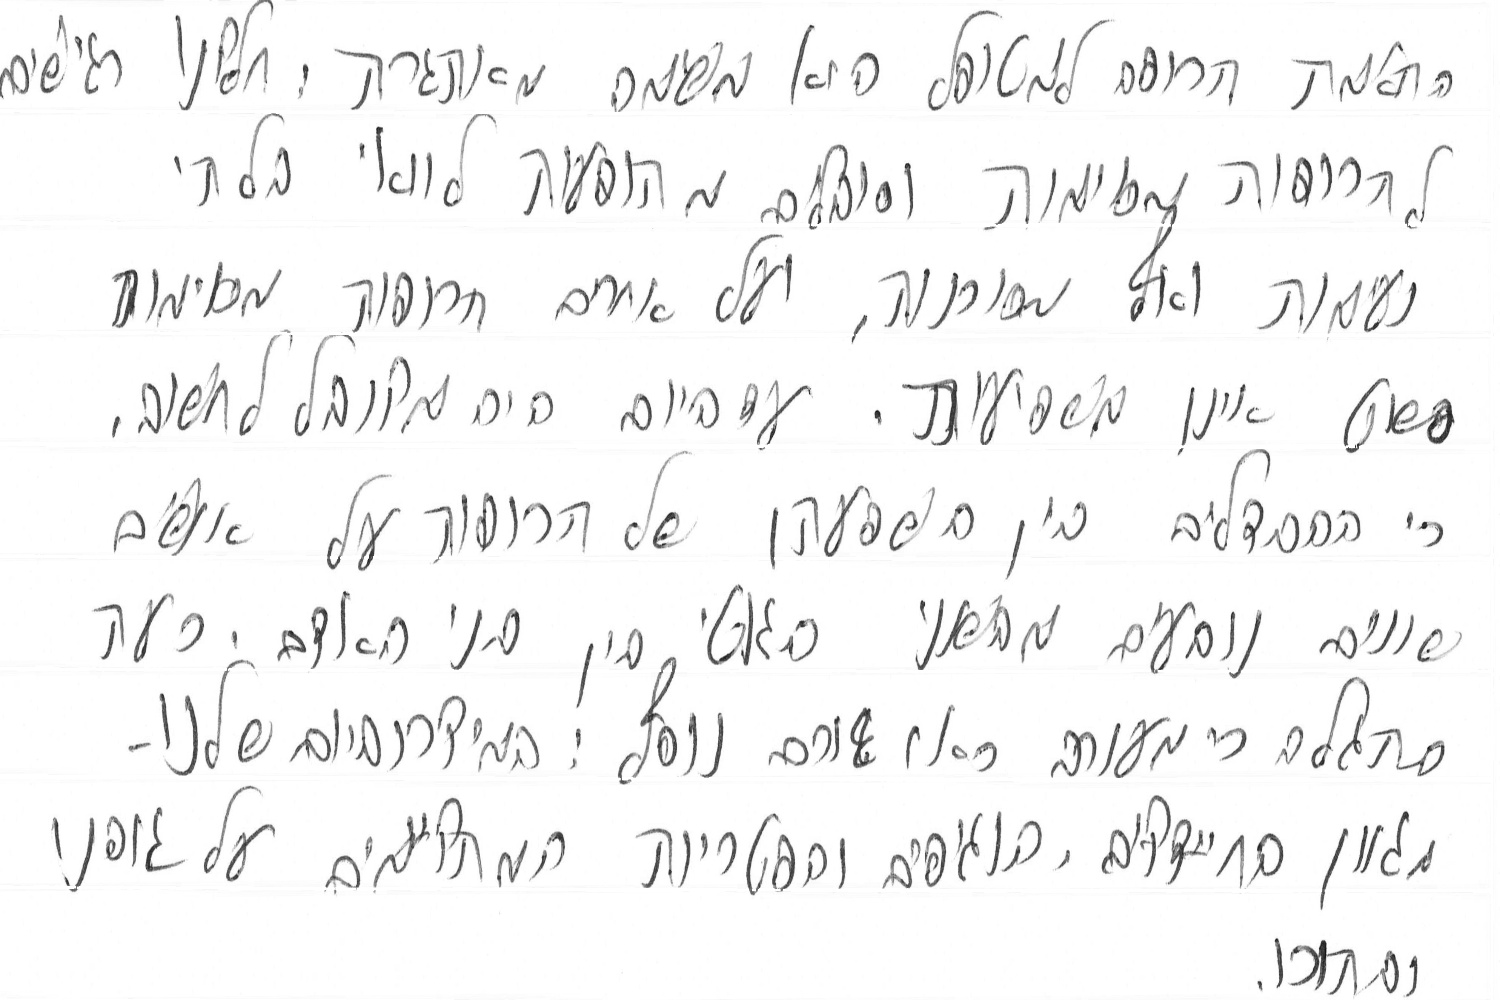 התאמת תרופה למטופל היא משימה מאתגרת, חלקנו רגישים
לתרופות מסוימות וסובלים מתופעות לוואי בלתי
נעימות ואף מסוכנות, ועל אחרים תרופות מסוימות
פשוט אינן משפיעות. עד היום היה מקובל לחשוב,
כי ההבדלים בין השפעתן של תרופות על אנשים
שונים נובעים מהשוני הגנטי בין בני האדם. כעת
מתגלה כי מעורב כאן גורם נוסף: המיקרוביום שלנו-
מגוון החיידקים, הנגיפים והפטריות המתקיימים על גופנו
ובתוכו.